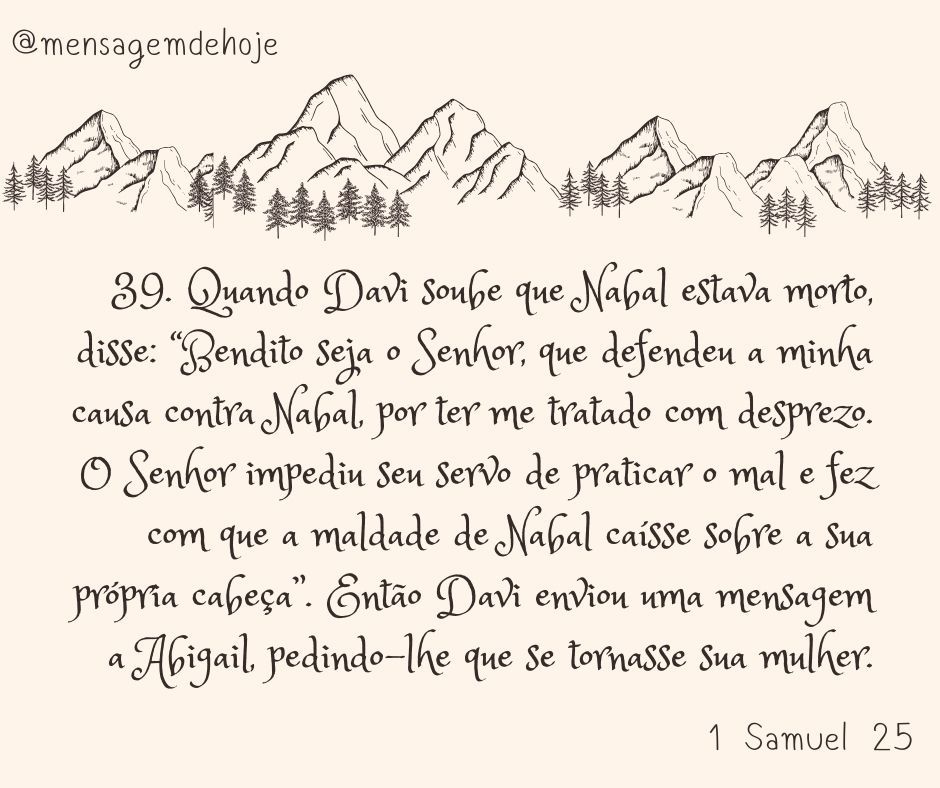 @mensagemdehoje
39. Quando Davi soube que Nabal estava morto,
disse: “Bendito seja o Senhor, que defendeu a minha
causa contra Nabal, por ter me tratado com desprezo.
O Senhor impediu seu servo de praticar o mal e fez
com que a maldade de Nabal caísse sobre a sua
própria cabeça”. Então Davi enviou uma mensagem
a Abigail, pedindo-lhe que se tornasse sua mulher.
1 Samuel 25